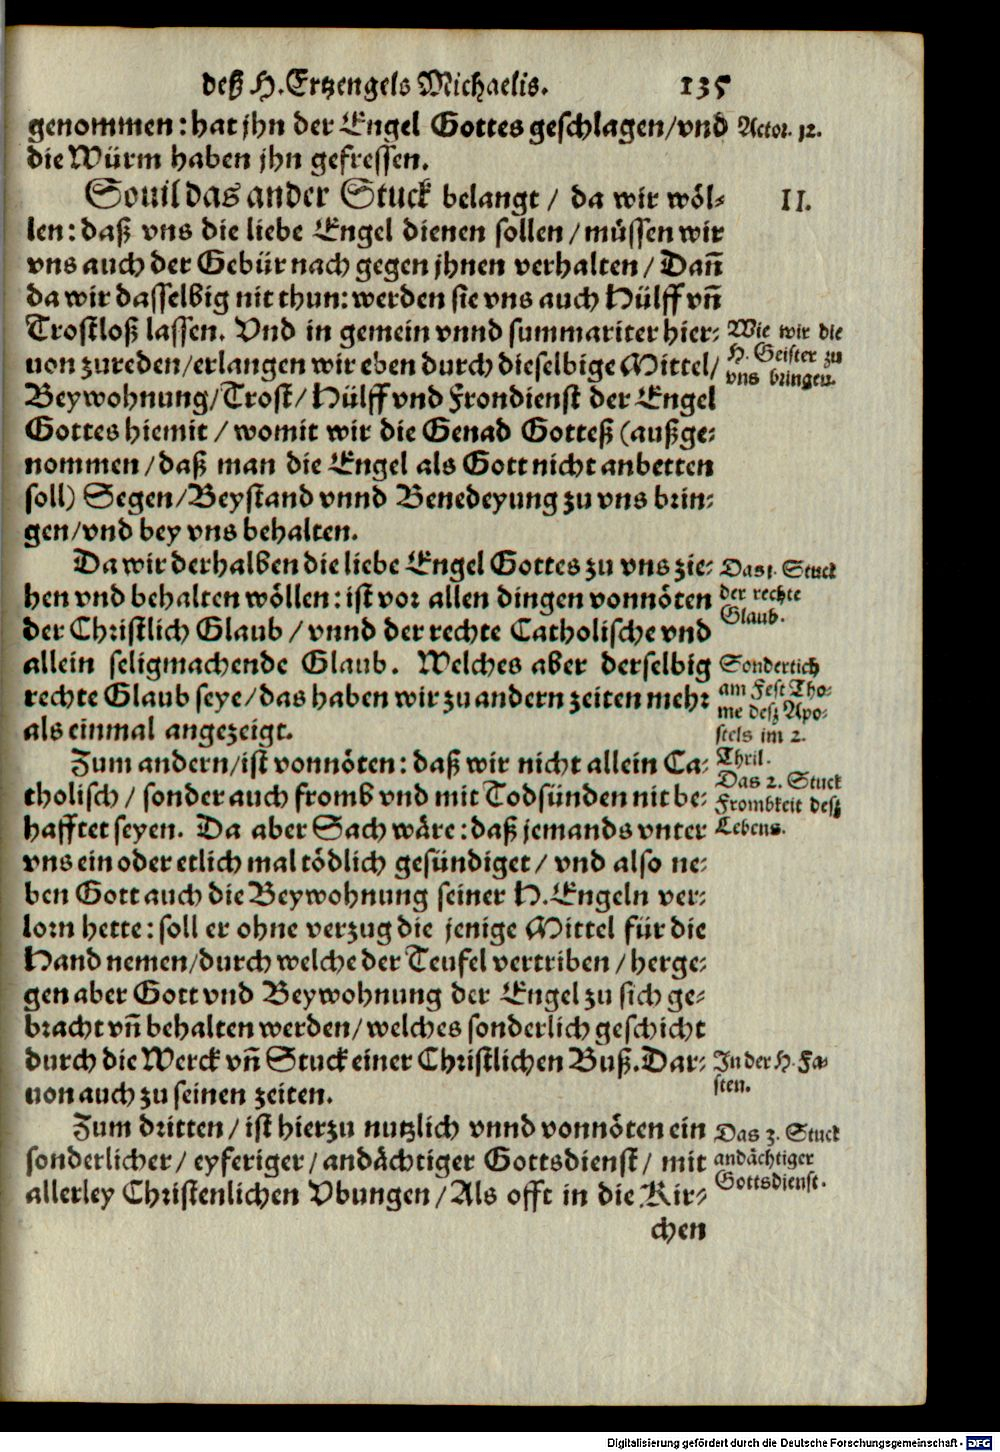 deß H. Ertzengels Michaelis. 135
genommen: hat jhn der Engel Gottes geschlagen/vnd
Actor. 12.
die Würm haben jhn gefressen.
Souil das ander Stuck belangt / da wir wöl-
II.
len: daß vns die liebe Engel dienen sollen / müssen wir
vns auch der Gebür nach gegen jhnen verhalten / Dañ
da wir dasselbig nit thun: werden sie vns auch Hülff vñ
Trostloß lassen. Vnd in gemein vnnd summariter hier-
uon zureden/erlangen wir eben durch dieselbige Mittel/
Beywohnung/Trost/Hülff vnd Frondienst der Engel
Gottes hiemit / womit wir die Genad Gotteß (außge-
nommen/daß man die Engel als Gott nicht anbetten
soll) Segen/Beystand vnnd Benedeyung zu vns brin-
gen/vnd bey vns behalten.
Wie wir die
H. Geister zu
vns bringen.
Da wir derhalben die liebe Engel Gottes zu vns zie-
hen vnd behalten wöllen: ist vor allen dingen vonnöten
der Christlich Glaub / vnnd der rechte Catholische vnd
allein seligmachende Glaub. Welches aber derselbig
rechte Glaub seye/das haben wir zu andern zeiten mehr
als einmal angezeigt.
Das 1. Stuck
der rechte
Glaub.
Sonderlich
am Fest Tho-
me deß Apo-
stels im 2.
Theil.
Zum andern/ist vonnöten: daß wir nicht allein Ca-
tholisch / sonder auch fromb vnd mit Todsünden nit be-
hafftet seyen. Da aber Sach wäre: daß jemands vnter
vns ein oder etlich mal tödlich gesündiget / vnd also ne-
ben Gott auch die Beywohnung seiner H. Engeln ver-
lorn hette: soll er ohne verzug die jenige Mittel für die
Hand nemen/durch welche der Teufel vertriben / herge-
gen aber Gott vnd Beywohnung der Engel zu sich ge-
bracht vñ behalten werden/welches sonderlich geschicht
durch die Werck vñ Stuck einer Christlichen Buß. Dar-
uon auch zu seinen zeiten.
Das 2. Stuck
Frombkeit deß
Lebens.
In der H. Fa-
sten.
Zum dritten / ist hierzu nutzlich vnnd vonnöten ein
sonderlicher/ eyferiger/ andächtiger Gottsdienst/ mit
allerley Christenlichen Vbungen/Als offt in die Kir-
Das 3. Stuck
andächtiger
Gottsdienst.
chen
Digitalisierung gefördert durch die Deutsche Forschungsgemeinschaft - DFG